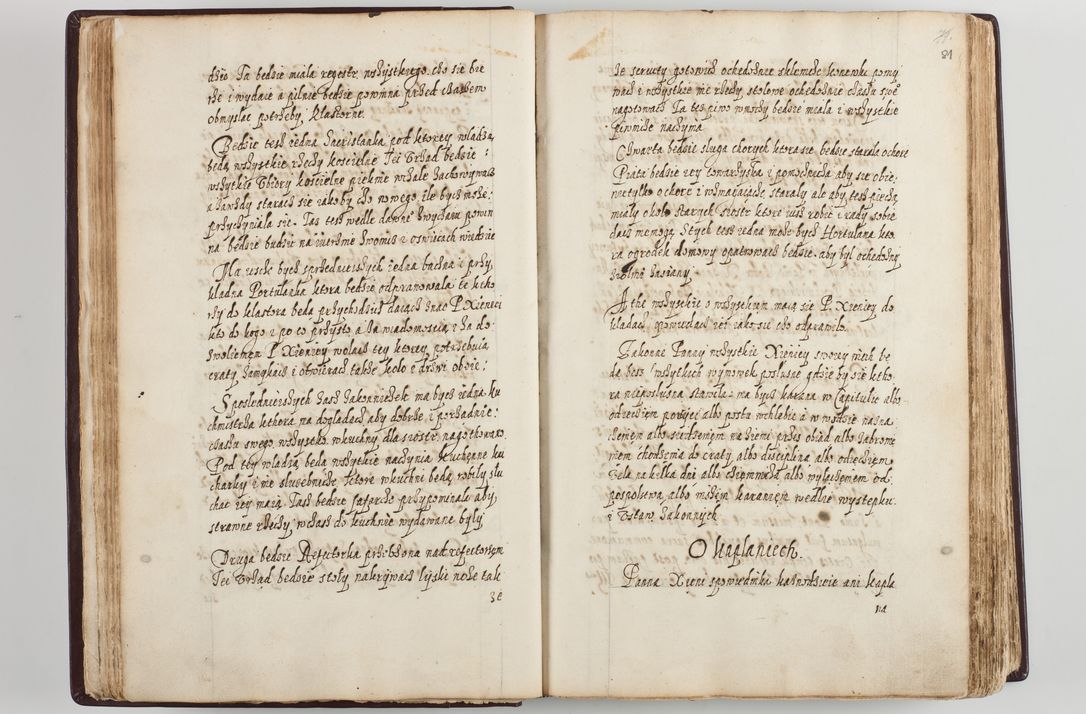 dzie Ta bedzie miala regestr wszystkiego czo sie bie
rze i wydaie a pilnie bedzie powinna przed czasem
obmyslac potrzeby, klastorne.
Bedzie tesz iedna Sacristianka pod ktorey wladzą
będą wszystkie rzeczy koscielne Iei Vrząd bedzie
wszytkie Vbiory koscielne pieknie w czale zachowywacz
a zawzdy staracz się iakoby czo nowego ile bycz może
przyczyniala się. Taz tesz wedle dawne zwyczaiu powin
na bedzie budzic na iutrznie
Ma tesz bycz iedna baczna i przy
kladna Portulanka ktora bedzie odprawowala te ktho
rzy do klastora beda przychodzicz daiącz znac P. Xieni
kto do kogo i po co przyszło a za wiadomoscią i za do
zwoleniem P Xieniey wolacz tey ktorey potrzebuią
craty zamykacz i otwieracz także kolo i drzwi oboie
Sposledniezszych zasz zakonniczek ma bycz iedna ku
chmistrka kthora ma dogladacz aby dobrze i porządnie
czasu swego wszysczko w kuchny dla siostr nagothowano
Pod thy wladzą będą wszytkie naczynia kucheane ku
charky i ine sluzebniczki ktore w kuchni będą robily slu
chac iey maią Tasz bedzie szafarze przypominala aby
strawne rzeczy wczasz do kuchnie wydawane byly
Druga bedzie Refectorka przelożona nad refectorzem
Iei Vrząd bedzie stoly nakrywacz lyżki noże tak
ze
81
ze serwety gotowicz ochedożnie sklenicze konewki pomy
wacz i wszystkie ine rzeczy stolowe ochedożnie czasu swe
nagotowacz Ta tesz piwo wnoszy bedzie miala i wszystkie
piwnicze naczynia
Czwarta bedzie sluga chorych ktora sie bedzie starala o chore
Piata bedzie iey towarzyszka i pomocniczka aby sie obie
nie tylko o chore i wzmagaiące staraly ale aby tesz pieczą
mialy okolo starych siostr ktore iusz robic i rady sobie
dacz nie mogą Z tych tesz iedna może bycz Hortulana kto
ra ogrodek domowy opatrowacz bedzie aby byl ochedożny
zasiany
A the wszystkie o wszystkim maią się P. Xieniey do
kladacz powiedacz iei iako sie czo odprawilo.
Zakonne Panny wszystkie Xieniey swoiey niech be
da bez wszytkich wymowek poslusne gdzie by sie ktho
ra nieposlusna stawila ma bycz karana w Capitulie albo
odieciem powieci albo postu o chlebie a w wodzie nazna
czeniem albo siedzeniem na ziemi przes obiad albo zabronie
niem chodzenia do craty, albo disciplina albo odieciem
Vela na kilka dni albo cziemnicą albo wylączeniem od
pospolstwa albo inszim karaniem wedlie wystepku
i Vstaw zakonnych
O kaplaniech.
Panna Xieni spowiedniki ani kapla
na